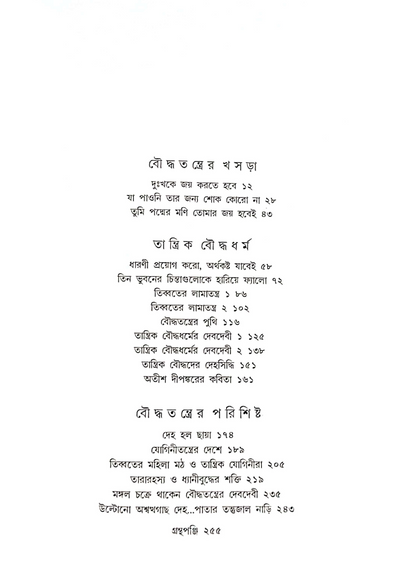 বৌদ্ধতন্ত্রের খসড়া
দুঃখকে জয় করতে হবে ১২
যা পাওনি তার জন্য শোক কোরো না ২৮
তুমি পদ্মের মণি তোমার জয় হবেই ৪৩
তান্ত্রিক বৌদ্ধধর্ম
ধারণী প্রয়োগ করো, অর্থকষ্ট যাবেই ৫৮
তিন ভুবনের চিন্তাগুলোকে হারিয়ে ফ্যালো ৭২
তিব্বতের লামাতন্ত্র ১ ৮৬
তিব্বতের লামাতন্ত্র ২ ১০২
বৌদ্ধতন্ত্রের পুথি ১১৬
তান্ত্রিক বৌদ্ধধর্মের দেবদেবী ১ ১২৫
তান্ত্রিক বৌদ্ধধর্মের দেবদেবী ২ ১৩৮
তান্ত্রিক বৌদ্ধদের দেহসিদ্ধি ১৫১
অতীশ দীপঙ্করের কবিতা ১৬১
বৌদ্ধতন্ত্রের পরিশিষ্ট
দেহ হল ছায়া ১৭৪
যোগিনীতন্ত্রের দেশে ১৮৯
তিব্বতের মহিলা মঠ ও তান্ত্রিক যোগিনীরা ২০৫
তারারহস্য ও ধ্যানীবুদ্ধের শক্তি ২১৯
মঙ্গল চক্রে থাকেন বৌদ্ধতন্ত্রের দেবদেবী ২৩৫
উল্টোনো অশ্বত্থগাছ দেহ...পাতার তন্তুজাল নাড়ি ২৪৩
গ্রন্থপঞ্জি ২৫৫